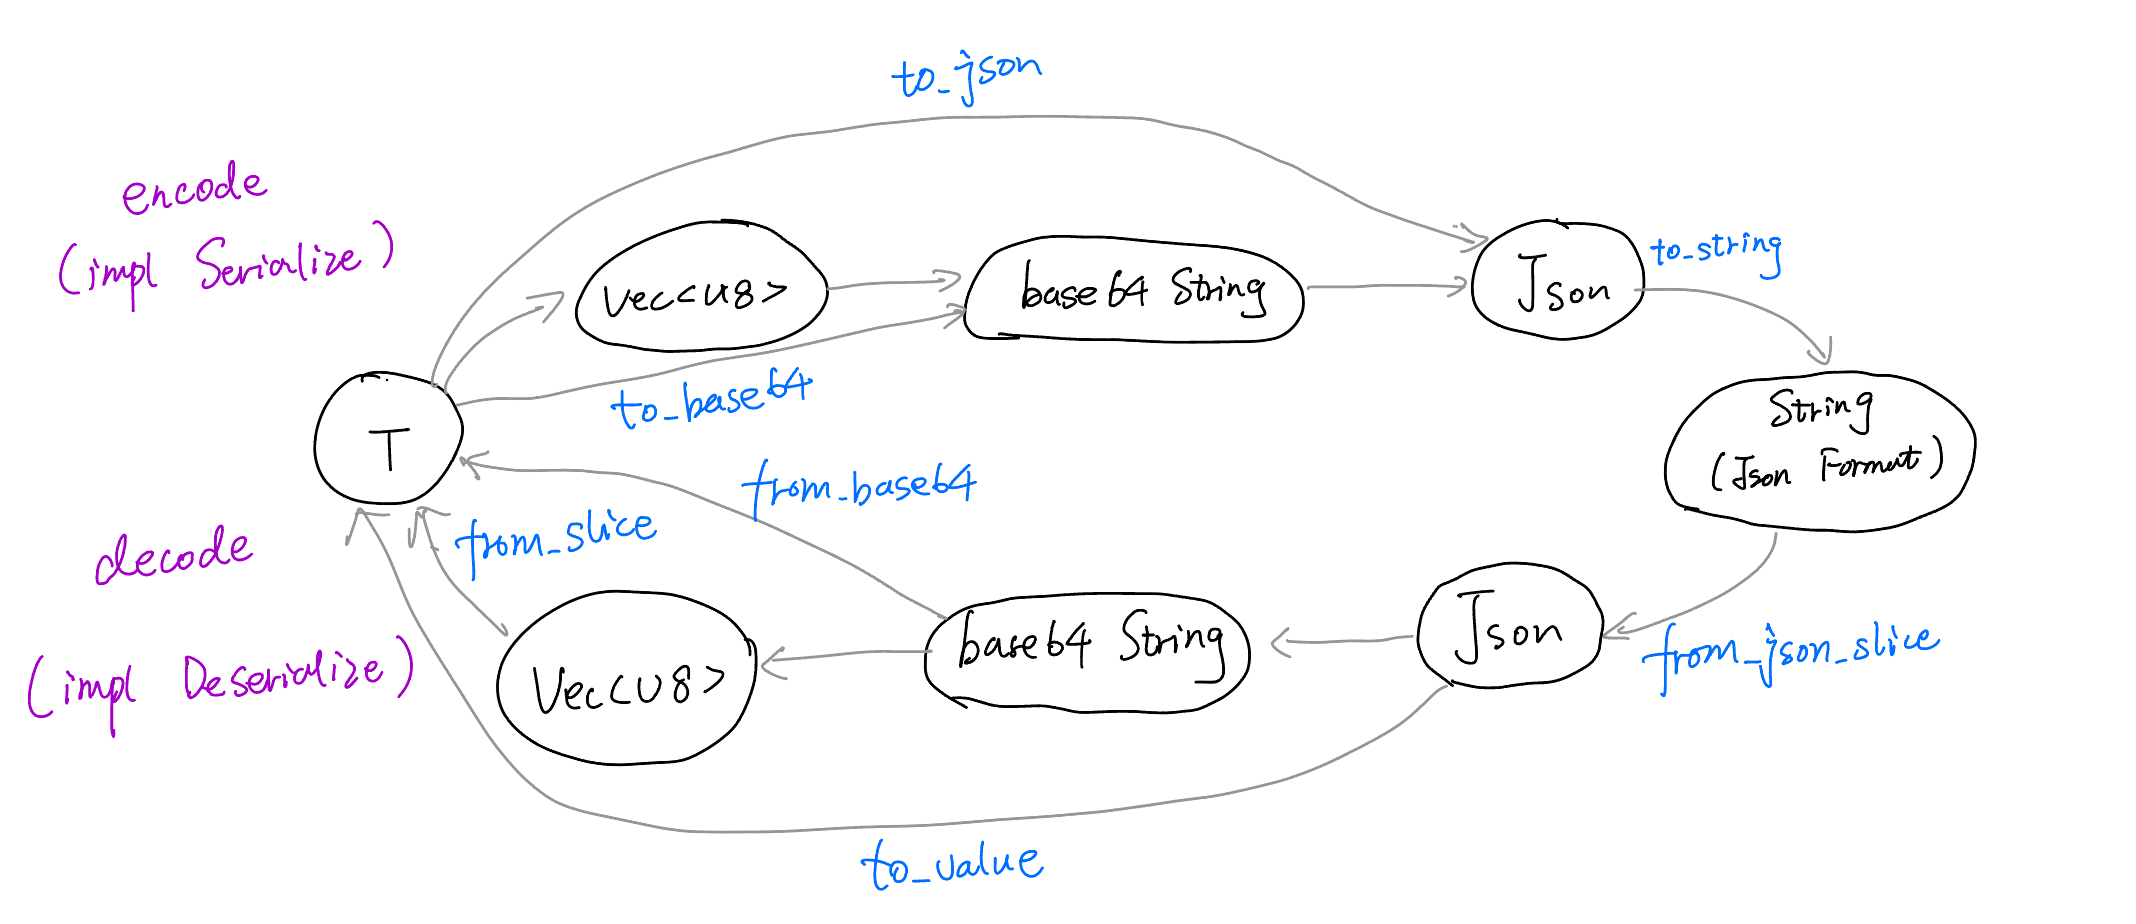 to_json
encode
(impl Serialize)
Vec<u8>
base64 String
Json
to_string
to_base64
T
String
(Json Format)
from_base64
from_slice
decode
(impl Deserialize)
Vec<U8>
base64 String
Json
from_json_slice
to_value